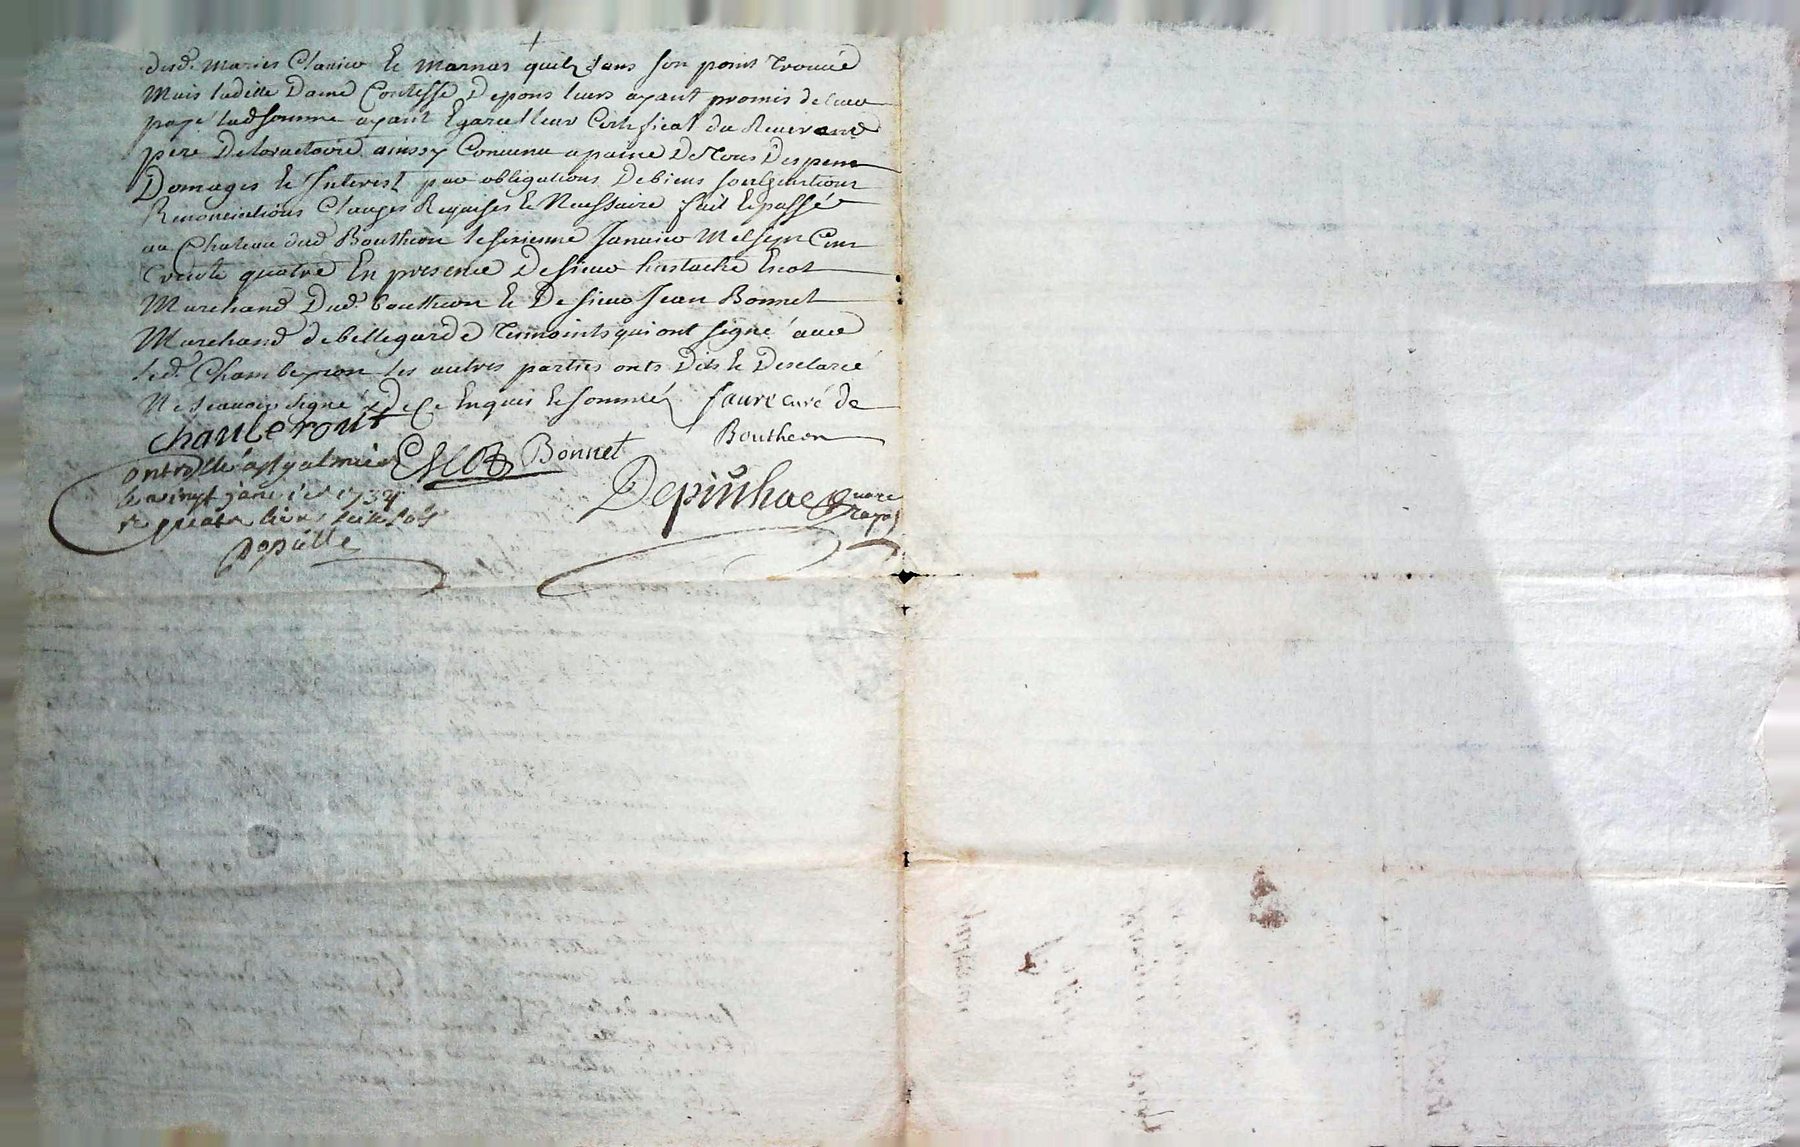 dud. Maries Clavier Et Marnas quilz dans son point trouvé
Mais laditte Dame Contesse Depons leurs ayant promis de leur
payé lad somme ayant Egaré leur Certificat du Reverand
pere De loratoire ainssy Convenu a paine De Tous Despens
Domages Et Interest par obligations De biens soubmitions
Renonciations Clauzes Requises Et Necessaire fait Et passé
au Chateau dud Boutheon le sixieme Janvier Mil sept Cent
trente quatre En presence De sieur Eustache Escot
Marchand Dud. boutheon Et De sieur Jean Bonnet
Marchand de bellegarde temoints qui ont signé avec
led. Chambeyron les autres parties onts Dits Et Desclaré
Ne scavoir signé De Ce Enquis Et sommés faure curé de
Boutheon
Escot Bonnet
ontrollé a st galmier
le vingt janvier 1734
R quatre livres seize sols
Depinhac